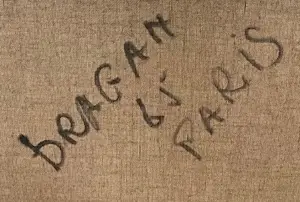 DRAGAN
65
PARIS